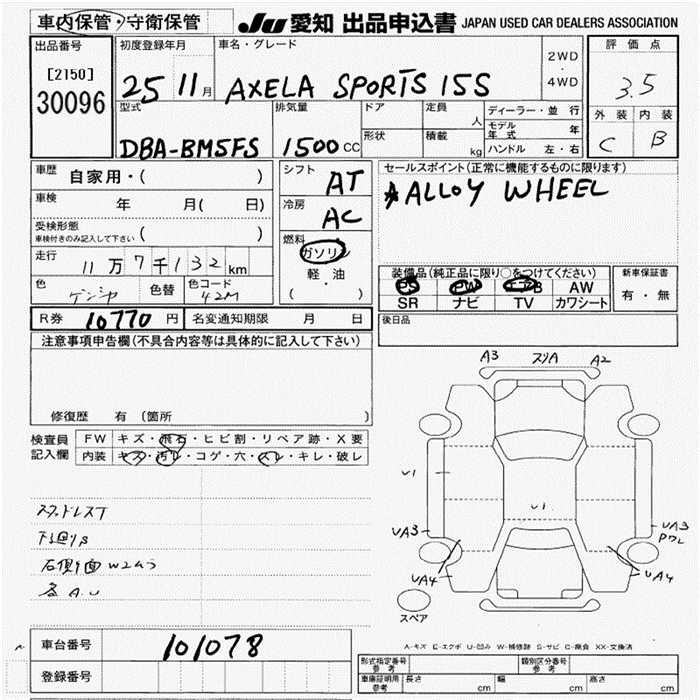 車内保管・守衛保管 JU 愛知 出品申込書 JAPAN USED CAR DEALERS ASSOCIATION
出品番号 初度登録年月 車名・グレード 2WD・4WD 評価点
[2150] 30096 25 11月 AXELA SPORTS 15S 3.5
外装 内装
C B
型式 排気量 ドア 定員 人 ディーラー・並行
モデル年式 年
DBA-BM5FS 1500 CC 形状 積載 kg ハンドル 左・右
車歴 自家用・( ) シフト AT セールスポイント(正常に機能するものに限ります)
ALLOY WHEEL
車検 年 月( 日) 冷房 AC
受検形態
車検付きのみ記入して下さい ( ) 燃料 ガソリン
走行 11万7千132km 軽・油
装備品(純正品に限り○をつけてください) 新車保証書
色 色替 色コード 42M ( )
PS PW エアB AW 有・無
SR ナビ TV カワシート
R券 10770円 名変通知期限 月 日 後日品
注意事項申告欄(不具合内容等は具体的に記入して下さい)
修復歴 有 (箇所
A3 スリA A2
検査員記入欄 FW キズ・飛石・ヒビ割・リペア跡・X要
内装 キズ・汚レ・コゲ・穴・スレ・キレ・破レ
U1 U1
UA3 UA3
UA4 UA4
下廻りS
A.U
スペア
車台番号 101078
A-キズ E-エクボ U-凹み W-補修跡 S-サビ C-腐食 XX-交換済
登録番号
形式指定番号 参考 類別区分番号 参考
車庫証明用 参考 長さ cm 幅 cm 高さ cm